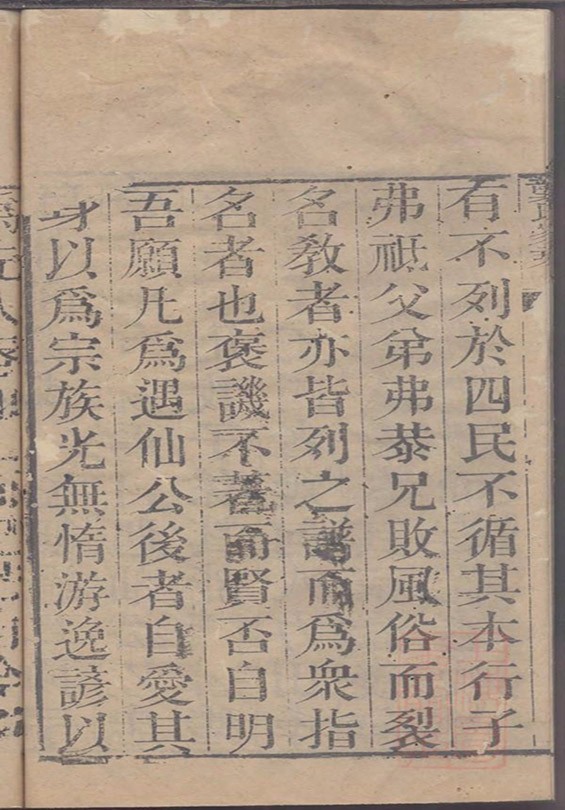 有不列於四民不循其本行子
弗祗父弟弗恭兄敗風俗而裂
名教者亦皆列之譜而爲衆指
名者也褒譏不著而賢否自明
吾願凡爲遇仙公後者自愛其
身以爲宗族光無惰游逸諺以